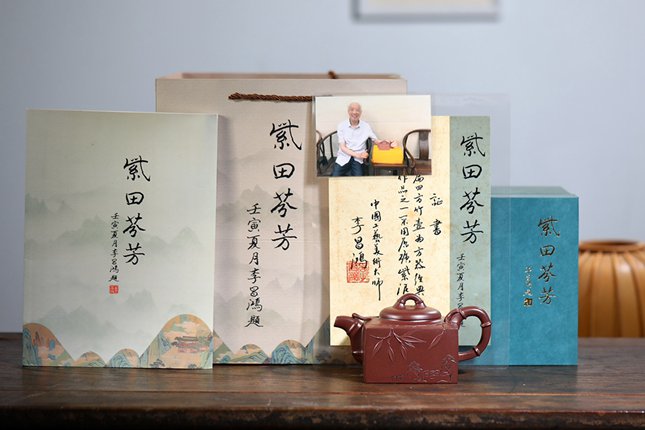 紫田芬芳
壬寅夏月李昌鸿题
紫田芬芳
壬寅夏月李昌鸿题
证书
四方竹壶为方器经典
作品之一采用原矿紫泥
中国工艺美术大师
李昌鸿
紫田芬芳
壬寅夏月李昌鸿题
紫田芬芳